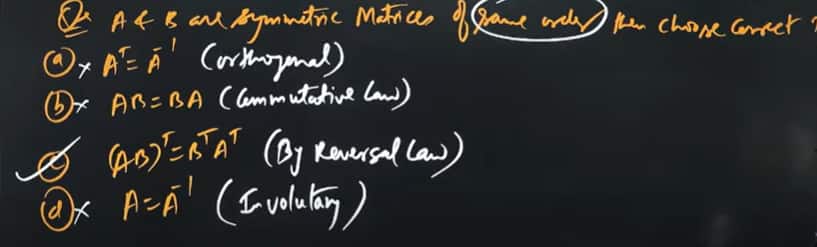 Q. A & B are Symmetric Matrices of same order then choose correct ?
(a) × Aᵀ = A⁻¹ (orthogonal)
(b) × AB = BA (Commutative Law)
(c) (AB)ᵀ = BᵀAᵀ (By Reversal Law)
(d) × A = A⁻¹ (Involutary)